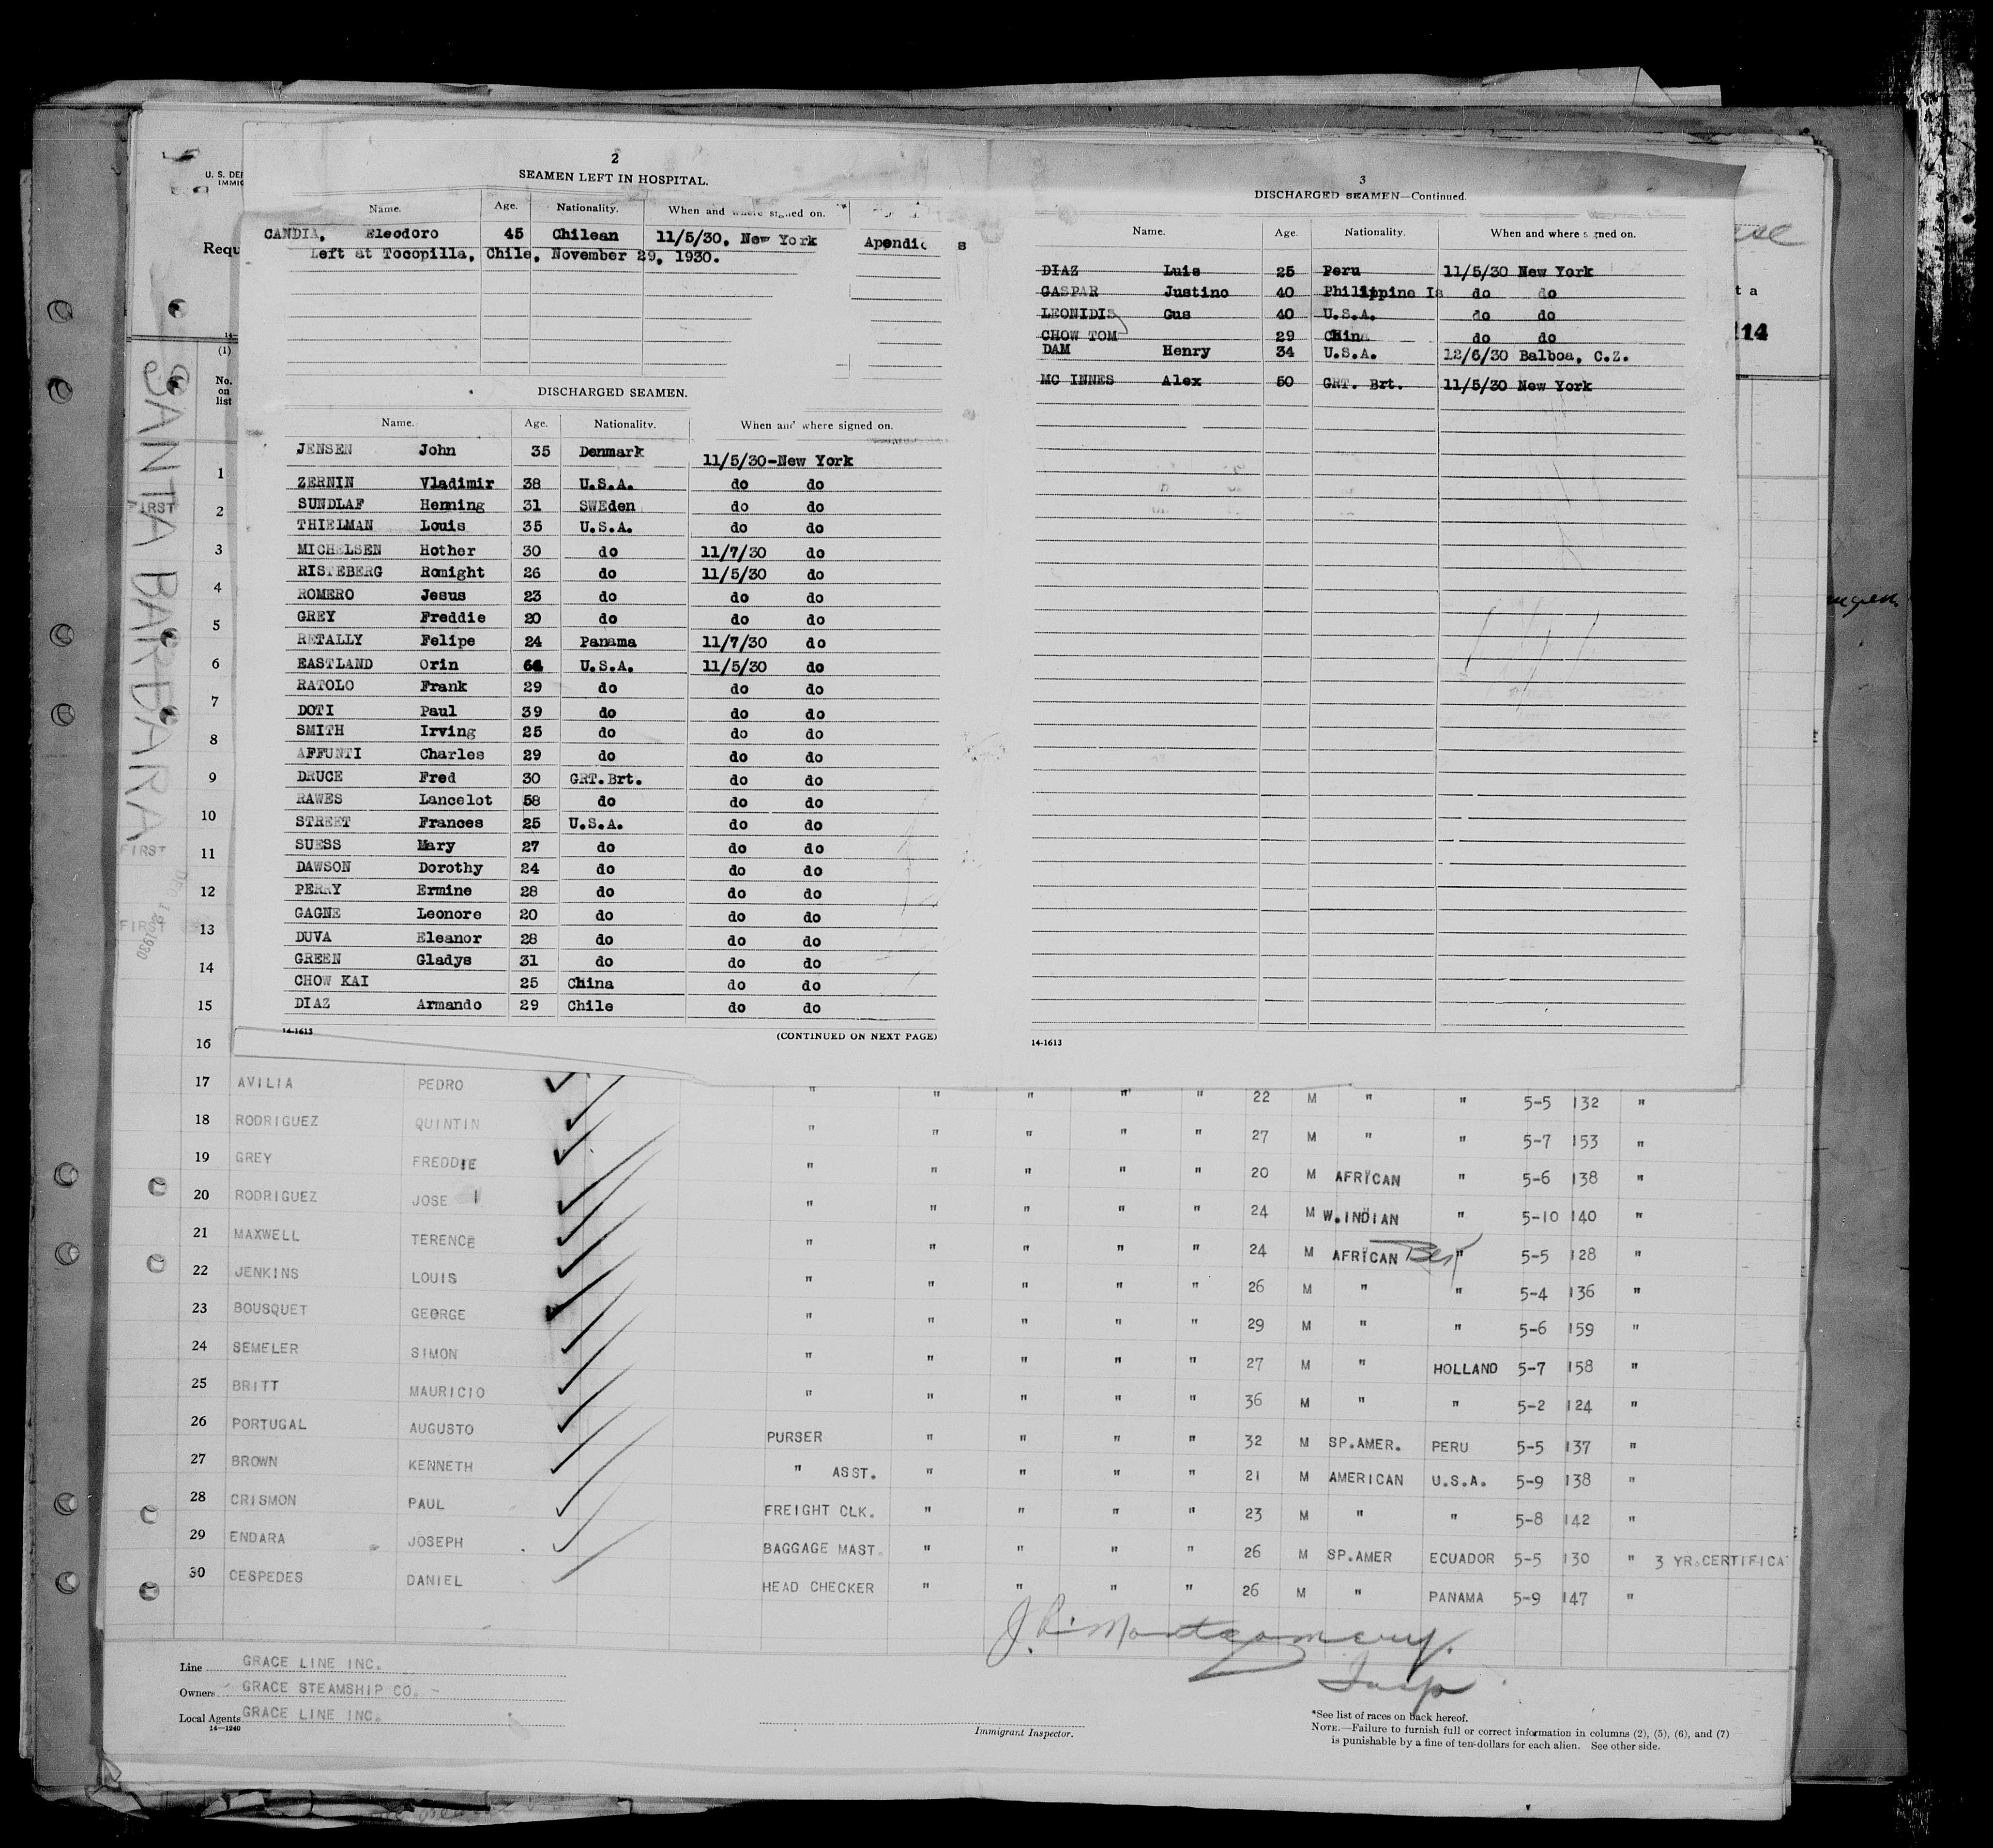 2
SEAMEN LEFT IN HOSPITAL.
Name. Age. Nationality. When and where signed on.
CANDIA, Eleodoro 45 Chilean 11/5/30, New York Apendic s
Left at Tocopilla, Chile, November 29, 1930.
DISCHARGED SEAMEN.
Name. Age. Nationality. When and where signed on.
JENSEN John 35 Denmark 11/5/30-New York
ZERNIN Vladimir 38 U.S.A. do do
SUNDLAF Henning 31 SWEden do do
THIELMAN Louis 35 U.S.A. do do
MICHELSEN Hother 30 do 11/7/30 do
RISTEBERG Romight 26 do 11/5/30 do
ROMERO Jesus 23 do do do
GREY Freddie 20 do do do
RETALLY Felipe 24 Panama 11/7/30 do
EASTLAND Orin U.S.A. 11/5/30 do
RATOLO Frank 29 do do do
DOTI Paul 39 do do do
SMITH Irving 25 do do do
AFFUNTI Charles 29 do do do
DRUCE Fred 30 GRT.Brt. do do
RAWES Lancelot 58 do do do
STREET Frances 25 U.S.A. do do
SUESS Mary 27 do do do
DAWSON Dorothy 24 do do do
PERRY Ermine 28 do do do
GAGNE Leonore 20 do do do
DUVA Eleanor 28 do do do
GREEN Gladys 31 do do do
CHOW KAI 25 China do do
DIAZ Armando 29 Chile do do
14-1613 (CONTINUED ON NEXT PAGE)
3
DISCHARGED SEAMEN—Continued.
Name. Age. Nationality. When and where s gned on.
DIAZ Luis 25 Peru 11/5/30 New York
GASPAR Justino 40 Philippine Is do do
LEONIDIS Gus 40 U.S.A. do do
CHOW TOM 29 CHina do do
DAM Henry 34 U.S.A. 12/6/30 Balboa, C.Z.
MC INNES Alex 50 GRT. Brt. 11/5/30 New York
14-1613
U. S. DE
IMMIG
Requ
t a
114
14-
(1)
No.
on
list
SANTA BARBARA
FIRST
FIRST
FIRST
DEC 1930
1
2
3
4
5
6
7
8
9
10
11
12
13
14
15
16
17 AVILIA PEDRO " " " " " 22 M " " 5-5 132 "
18 RODRIGUEZ QUINTIN " " " " " 27 M " " 5-7 153 "
19 GREY FREDDIE " " " " " 20 M AFRICAN " 5-6 138 "
20 RODRIGUEZ JOSE I " " " " " 24 M W.INDIAN " 5-10 140 "
21 MAXWELL TERENCE " " " " " 24 M AFRICAN " 5-5 128 "
22 JENKINS LOUIS " " " " " 26 M " " 5-4 136 "
23 BOUSQUET GEORGE " " " " " 29 M " " 5-6 159 "
24 SEMELER SIMON " " " " " 27 M " HOLLAND 5-7 158 "
25 BRITT MAURICIO " " " " " 36 M " " 5-2 124 "
26 PORTUGAL AUGUSTO PURSER " " " " 32 M SP.AMER. PERU 5-5 137 "
27 BROWN KENNETH " ASST. " " " " 21 M AMERICAN U.S.A. 5-9 138 "
28 CRISMON PAUL FREIGHT CLK. " " " " 23 M " " 5-8 142 "
29 ENDARA JOSEPH BAGGAGE MAST. " " " " 26 M SP.AMER ECUADOR 5-5 130 " 3 YR.CERTIFICA
30 CESPEDES DANIEL HEAD CHECKER " " " " 26 M " PANAMA 5-9 147 "
J. R. Montgomery.
Insp
Line GRACE LINE INC.
Owners GRACE STEAMSHIP CO. -
Local Agents GRACE LINE INC.
14—1240
Immigrant Inspector.
*See list of races on back hereof.
NOTE.—Failure to furnish full or correct information in columns (2), (5), (6), and (7)
is punishable by a fine of ten dollars for each alien. See other side.